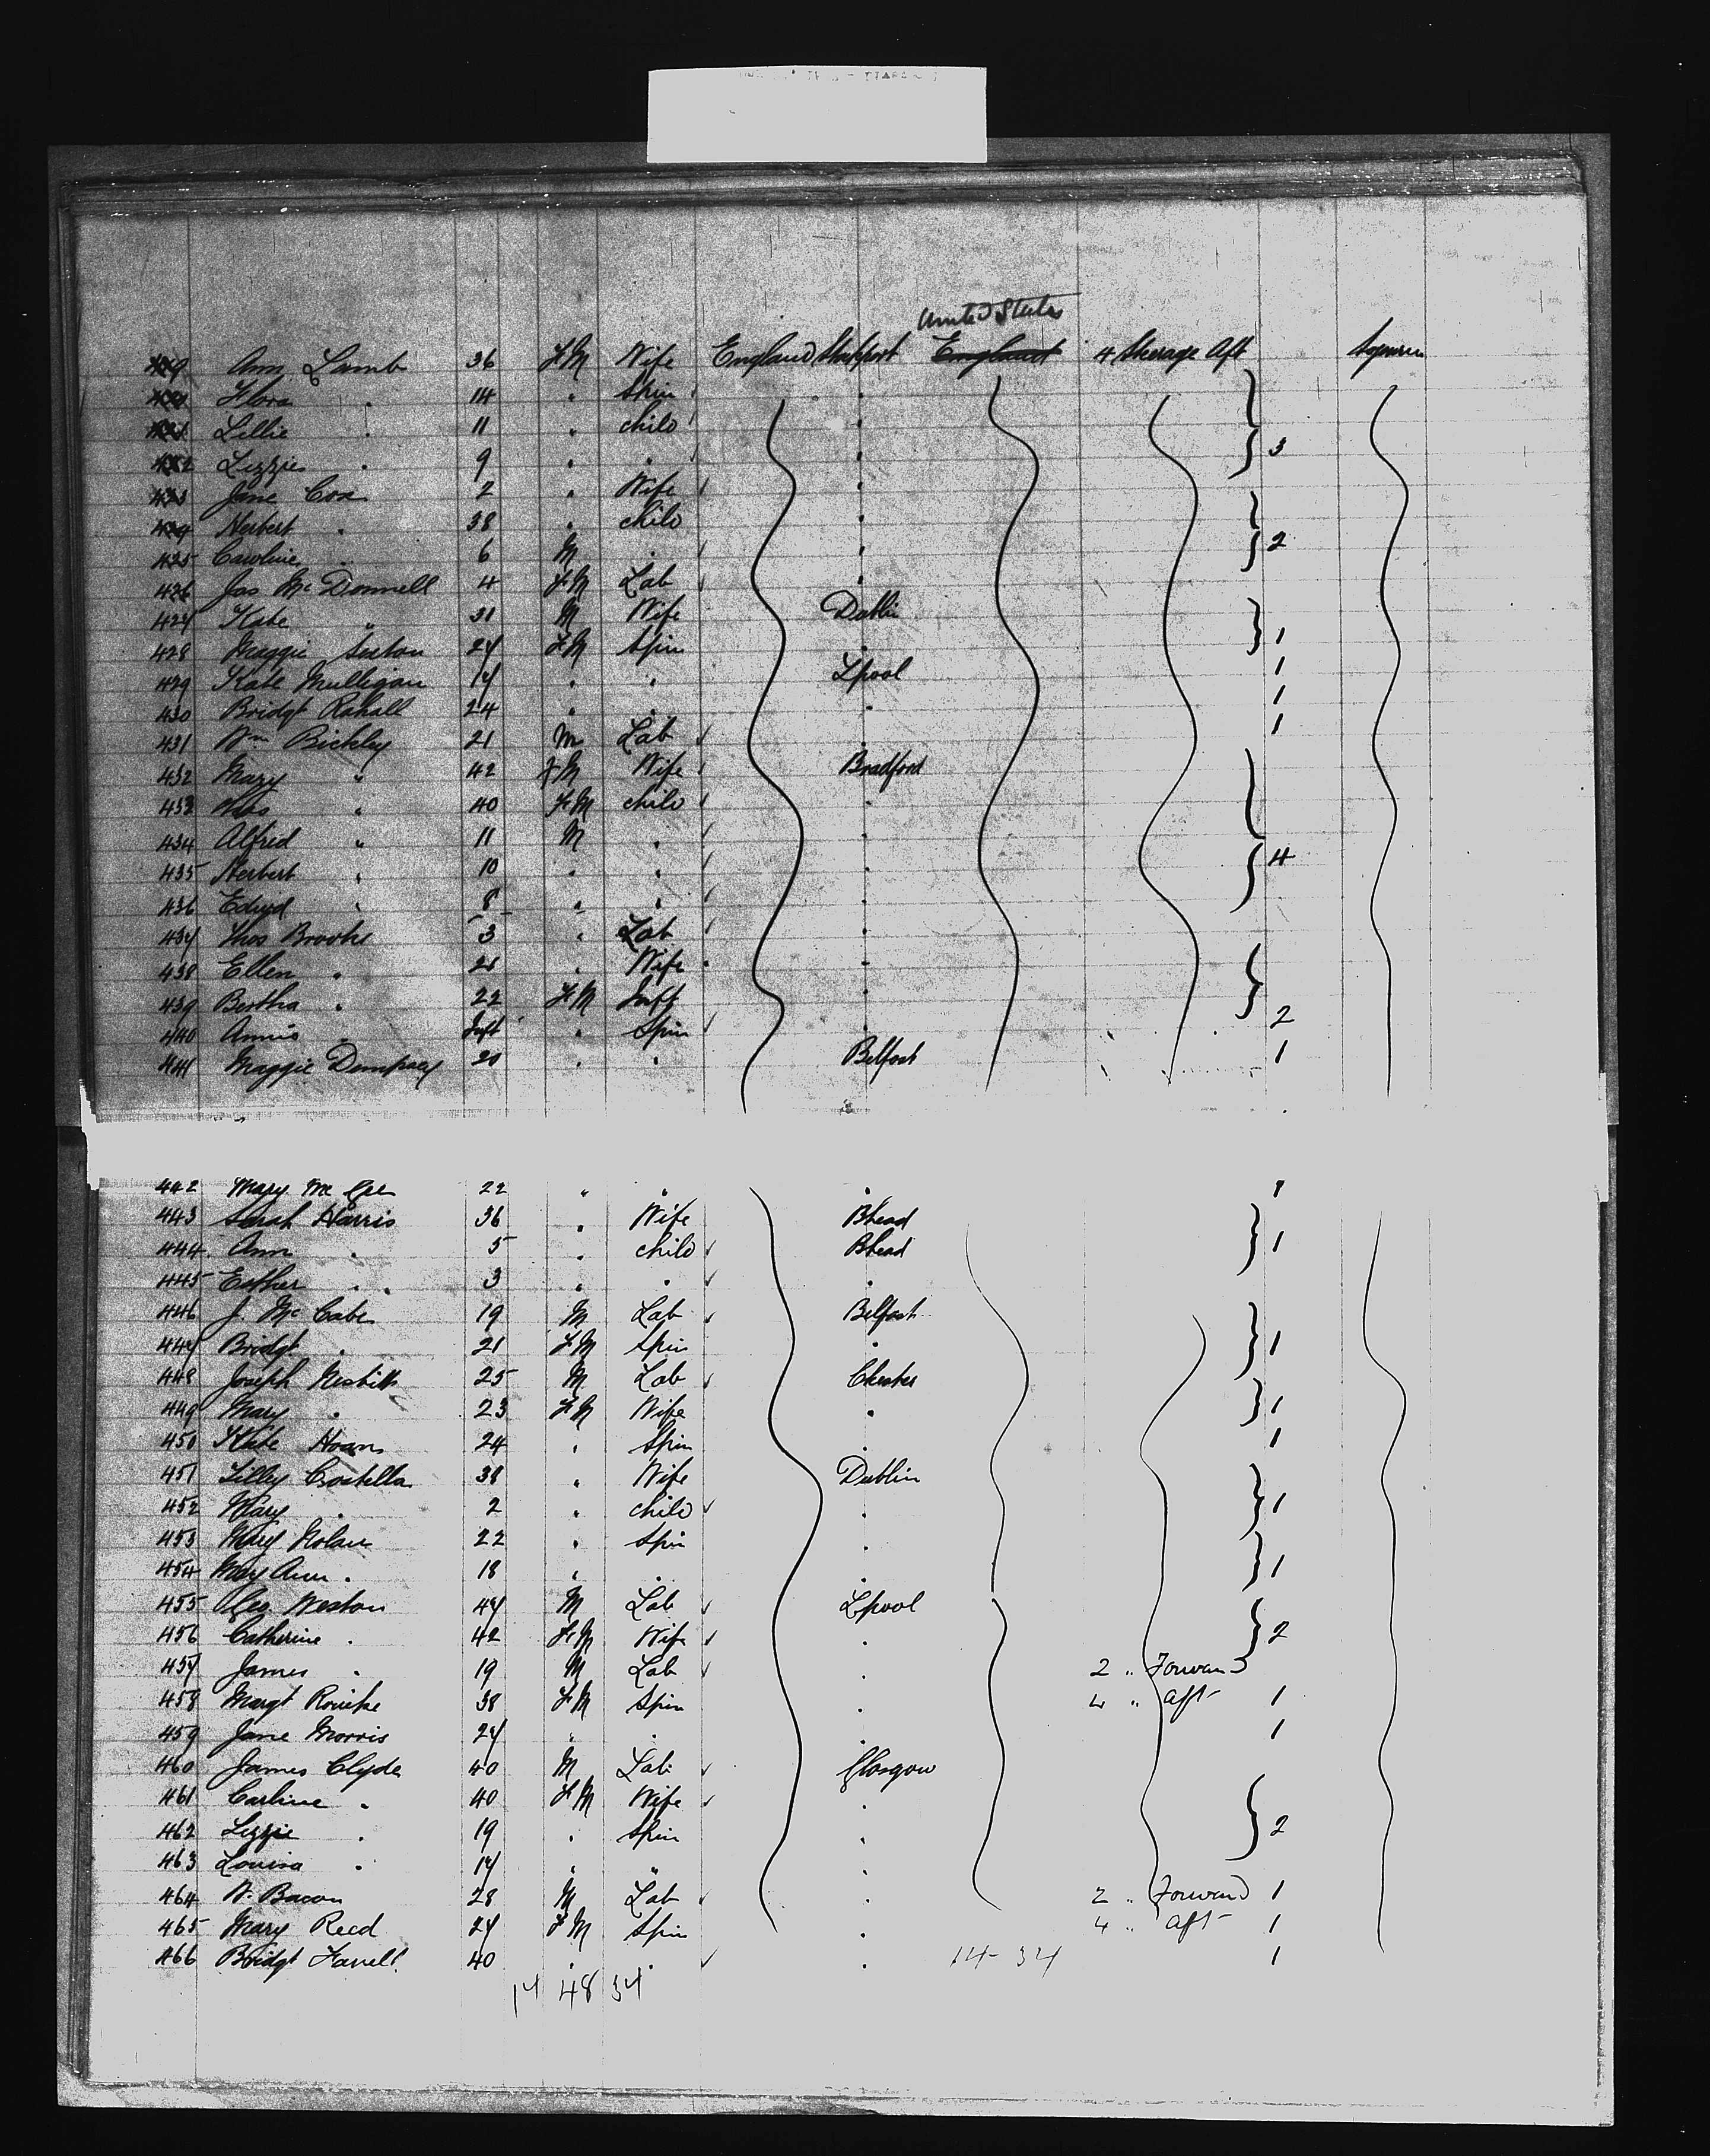 United States
Ann Lamb 36 FM Wife England Stockport England 4 Steerage Aft Sojourn
Flora " 14 " Spin "
Lillie " 11 " child "
Lizzie " 9 " " " 3
423 Jane Cox 2 " Wife "
424 Herbert " 38 " child "
425 Caroline " 6 M " " 2
426 Jas McDonnell 4 FM Lab "
427 Kate " 31 M Wife Dublin
428 Maggie Sexton 27 FM Spin " 1
429 Kate Mulligan 17 " " Lpool 1
430 Bridgt Rahall 24 " " " 1
431 Wm Bickley 21 M Lab 1
432 Mary " 42 FM Wife Bradford
433 " 40 FM child "
434 Alfred " 11 M " "
435 Herbert " 10 " " " 4
436 Edwd " 8 " " "
437 Thos Brooks 3 " Lab "
438 Ellen " " Wife "
439 Bertha " 22 FM Inft "
440 Annis Inft " Spin " 2
441 Maggie Dempsey 20 " " Belfast 1
442 Mary Mc 22 " " " 1
443 Sarah Harris 36 " Wife Bhead
444 Ann " 5 " child Bhead 1
445 Esther " 3 " " "
446 J. McCabe 19 M Lab Belfast
447 Bridgt " 21 FM Spin " 1
448 Joseph Nesbitt 25 M Lab Chester
449 Mary " 23 FM Wife " 1
450 Kate 24 " Spin " 1
451 Lilley Costella 38 " Wife Dublin
452 Mary " 2 " child " 1
453 Mary Nolan 22 " Spin "
454 May Ann " 18 " " " 1
455 Geo. Weston 47 M Lab Lpool
456 Catherine " 42 FM Wife " 2
457 James " 19 M Lab " 2 " Forward
458 Margt Rourke 38 FM Spin " 4 " Aft 1
459 Jane Morris 27 " " " 1
460 James Clyde 40 M Lab Glasgow
461 Carline " 40 FM Wife "
462 Lizzie " 19 " Spin " 2
463 Louisa " 17 " " "
464 W. Bacon 28 M Lab " 2 " Forward 1
465 Mary Reed 27 FM Spin " 4 " Aft 1
466 Bridgt Farrell 40 " " " 14-34 1
14 48 34